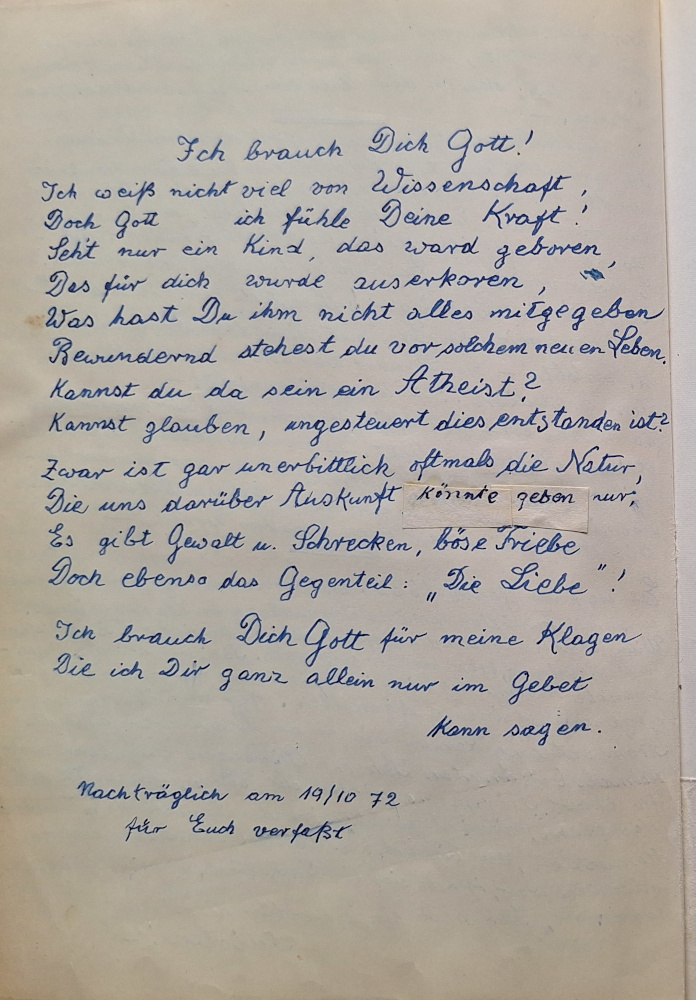 Ich brauch Dich Gott!
Ich weiß nicht viel von Wissenschaft,
Doch Gott ich fühle Deine Kraft!
Seht nur ein Kind, das ward geboren,
Das für dich wurde auserkoren,
Was hast Du ihm nicht alles mitgegeben
Bewundernd stehest du vor solchem neuen Leben.
Kannst du da sein ein Atheist?
Kannst glauben, ungesteuert dies entstanden ist?
Zwar ist gar unerbittlich oftmals die Natur,
Die uns darüber Auskunft könnte geben nur.
Es gibt Gewalt u. Schrecken, böse Triebe
Doch ebenso das Gegenteil: „Die Liebe"!
Ich brauch Dich Gott für meine Klagen
Die ich Dir ganz allein nur im Gebet
kann sagen.
Nachträglich am 19/10 72
für Euch verfaßt